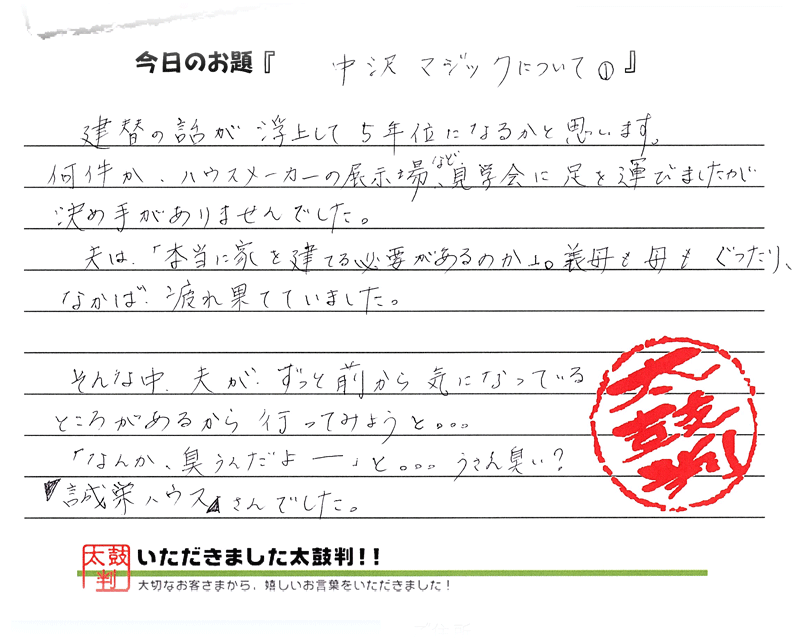 今日のお題『 中沢 マジックについて① 』
建替の話が浮上して5年位になるかと思います。
何件か、ハウスメーカーの展示場、など見学会に足を運びましたが
決め手がありませんでした。
夫は、「本当に家を建てる必要があるのか」。義母も母もぐったり、
なかば、疲れ果てていました。
そんな中、夫が、ずっと前から気になっている
ところがあるから行ってみようと。。。
「なんか、臭うんだよー」と。。。うさん臭い?
『誠栄ハウス』さんでした。
太鼓判
太鼓判 いただきました太鼓判!!
大切なお客さまから、嬉しいお言葉をいただきました!